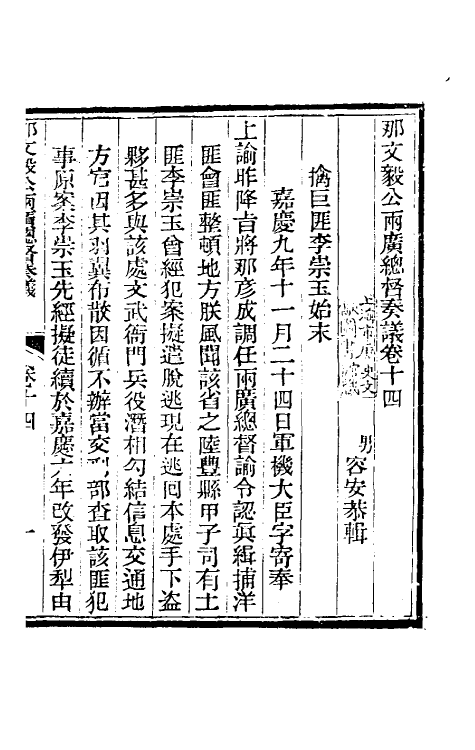 那文毅公兩廣總督奏議卷十四
男
容安恭輯
擒巨匪李崇玉始末
嘉慶九年十一月二十四日軍機大臣字寄奉
上諭昨降旨將那彥成調任兩廣總督諭令認眞緝捕洋
匪會匪整頓地方朕風聞該省之陸豐縣甲子司有土
匪李崇玉曾經犯案擬遣脫逃現在逃回本處手下盜
夥甚多與該處文武衙門兵役潛相勾結信息交通地
方官因其羽翼布散因循不辦當交刑部查取該匪犯
事原案李崇玉先經擬徒續於嘉慶六年改發伊犁由
那文毅公兩廣總督奏議
卷十四
一